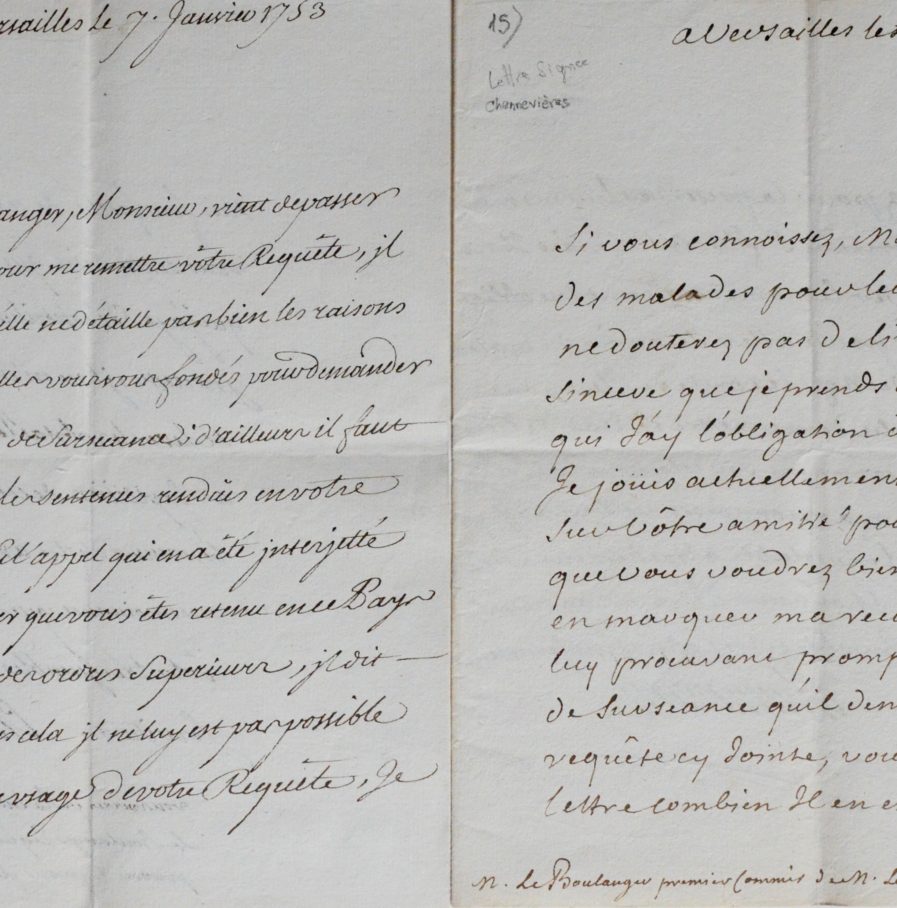 rsailles le 7. Janvier 1753
anger, Monsieur, vient de passer
our me remettre vôtre Requête, jl
elle ne détaille pas bien les raisons
lles vous vous fondés pour demander
de Surseance; d'ailleurs il faut
les sentences rendües en votre
et l'appel qui en a été jnterjetté
er que vous êtes retenu en ce Pays
des ordres Superieurs, jl dit
cela jl ne luy est pas possible
de votre Requête, Je
15)
Lettre Signée
Channevières
a Versailles le
Si vous connoissez, M
des malades pour le
ne douterez pas de l'i
Sincere que je prends
qui J'ay l'obligation
Je joüis actuellemen
Sur Vôtre amitié pou
que Vous voudrez bien
en marquer ma reco
luy procurant promp
de Surseance qu'il dem
requête cy Jointe, vou
lettre combien Il en e
M. Le Boulanger premier Commis de M. Le